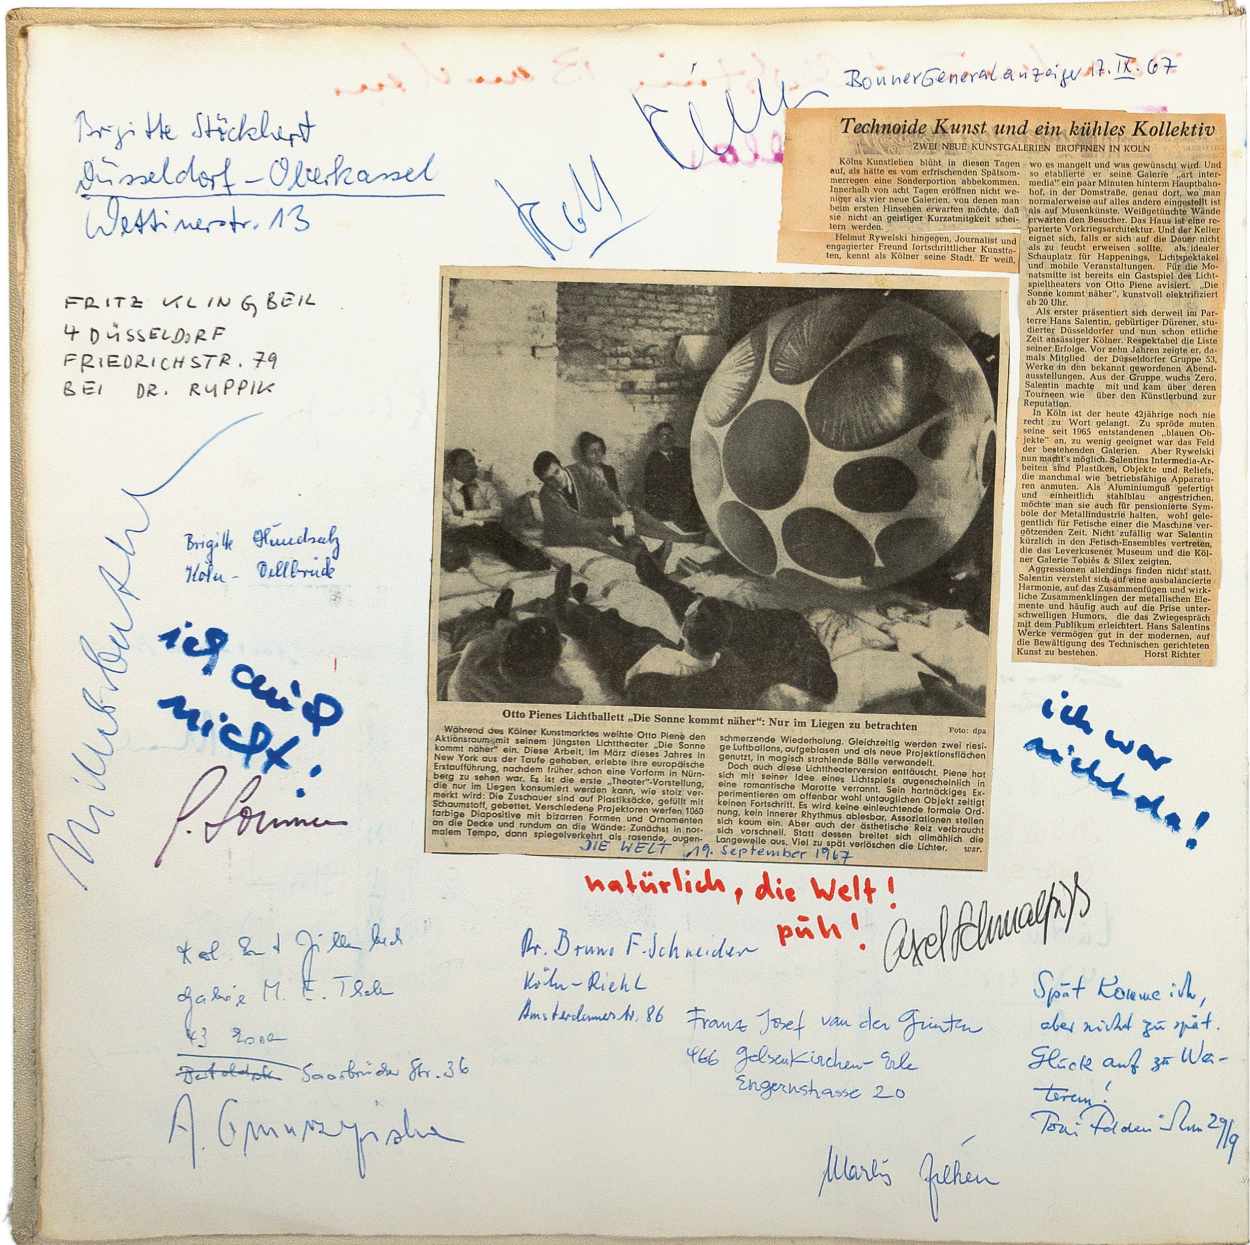 BonnerGeneralanzeiger 17. IX. 67
Brigitte Stöckhert
Düsseldorf - Oberkassel
Wettinerstr. 13
FRITZ KLINGBEIL
4 DÜSSELDORF
FRIEDRICHSTR. 79
BEI DR. RUPPIK
Technoide Kunst und ein kühles Kollektiv
ZWEI NEUE KUNSTGALERIEN ERÖFFNEN IN KÖLN
Kölns Kunstleben blüht in diesen Tagen
auf, als hätte es vom erfrischenden Spätsom-
merregen eine Sonderportion abbekommen.
Innerhalb von acht Tagen eröffnen nicht we-
niger als vier neue Galerien, von denen man
beim ersten Hinsehen erwarten möchte, daß
sie nicht an geistiger Kurzatmigkeit schei-
tern werden.
Helmut Rywelski hingegen, Journalist und
engagierter Freund fortschrittlicher Kunstta-
ten, kennt als Kölner seine Stadt. Er weiß,
wo es mangelt und was gewünscht wird. Und
so etablierte er seine Galerie „art inter-
media" ein paar Minuten hinterm Hauptbahn-
hof, in der Domstraße, genau dort, wo man
normalerweise auf alles andere eingestellt ist
als auf Musenkünste. Weißgetünchte Wände
erwarten den Besucher. Das Haus ist eine re-
parierte Vorkriegsarchitektur. Und der Keller
eignet sich, falls er sich auf die Dauer nicht
als zu feucht erweisen sollte, als idealer
Schauplatz für Happenings, Lichtspektakel
und mobile Veranstaltungen. Für die Mo-
natsmitte ist bereits ein Gastspiel des Licht-
spieltheaters von Otto Piene avisiert. „Die
Sonne kommt näher", kunstvoll elektrifiziert
ab 20 Uhr.
Als erster präsentiert sich derweil im Par-
terre Hans Salentin, gebürtiger Dürener, stu-
dierter Düsseldorfer und nun schon etliche
Zeit ansässiger Kölner. Respektabel die Liste
seiner Erfolge. Vor zehn Jahren zeigte er, da-
mals Mitglied der Düsseldorfer Gruppe 53,
Werke in den bekannt gewordenen Abend-
ausstellungen. Aus der Gruppe wuchs Zero.
Salentin machte mit und kam über deren
Tourneen wie über den Künstlerbund zur
Reputation.
In Köln ist der heute 42jährige noch nie
recht zu Wort gelangt. Zu spröde muten
seine seit 1965 entstandenen „blauen Ob-
jekte" an, zu wenig geeignet war das Feld
der bestehenden Galerien. Aber Rywelski
nun macht's möglich. Salentins Intermedia-Ar-
beiten sind Plastiken, Objekte und Reliefs,
die manchmal wie betriebsfähige Apparatu-
ren anmuten. Als Aluminiumguß gefertigt
und einheitlich stahlblau angestrichen,
möchte man sie auch für pensionierte Sym-
bole der Metallindustrie halten, wohl gele-
gentlich für Fetische einer die Maschine ver-
götzenden Zeit. Nicht zufällig war Salentin
kürzlich in den Fetisch-Ensembles vertreten,
die das Leverkusener Museum und die Köl-
ner Galerie Tobiès & Silex zeigten.
Aggressionen allerdings finden nicht statt.
Salentin versteht sich auf eine ausbalancierte
Harmonie, auf das Zusammenfügen und wirk-
liche Zusammenklingen der metallischen Ele-
mente und häufig auch auf die Prise unter-
schwelligen Humors, die das Zwiegespräch
mit dem Publikum erleichtert. Hans Salentins
Werke vermögen gut in der modernen, auf
die Bewältigung des Technischen gerichteten
Kunst zu bestehen. Horst Richter
Brigitte
Köln - Dellbrück
ich auch
nicht!
Otto Pienes Lichtballett „Die Sonne kommt näher": Nur im Liegen zu betrachten
Foto: dpa
Während des Kölner Kunstmarktes weihte Otto Piene den
Aktionsraum mit seinem jüngsten Lichttheater „Die Sonne
kommt näher" ein. Diese Arbeit, im März dieses Jahres in
New York aus der Taufe gehoben, erlebte ihre europäische
Erstaufführung, nachdem früher schon eine Vorform in Nürn-
berg zu sehen war. Es ist die erste „Theater"-Vorstellung,
die nur im Liegen konsumiert werden kann, wie stolz ver-
merkt wird: Die Zuschauer sind auf Plastiksäcke, gefüllt mit
Schaumstoff, gebettet. Verschiedene Projektoren werfen 1060
farbige Diapositive mit bizarren Formen und Ornamenten
an die Decke und rundum an die Wände: Zunächst in nor-
malem Tempo, dann spiegelverkehrt als rasende, augen-
schmerzende Wiederholung. Gleichzeitig werden zwei riesi-
ge Luftballons, aufgeblasen und als neue Projektionsflächen
genutzt, in magisch strahlende Bälle verwandelt.
Doch auch diese Lichttheaterversion enttäuscht. Piene hat
sich mit seiner Idee eines Lichtspiels augenscheinlich in
eine romantische Marotte verrannt. Sein hartnäckiges Ex-
perimentieren am offenbar wohl untauglichen Objekt zeitigt
keinen Fortschritt. Es wird keine einleuchtende formale Ord-
nung, kein innerer Rhythmus ablesbar, Assoziationen stellen
sich kaum ein. Aber auch der ästhetische Reiz verbraucht
sich vorschnell. Statt dessen breitet sich allmählich die
Langeweile aus. Viel zu spät verlöschen die Lichter. wsr.
DIE WELT 19. September 1967
ich war
nicht da!
natürlich, die Welt!
püh!
Axel Schmalfuß
Galerie M. E. Thelen
43 Essen
Saarbrücker Str. 36
Dr. Bruno F. Schneider
Köln-Riehl
Amsterdamerstr. 86
Franz Josef van der Grinten
466 Gelsenkirchen-Erle
Engernstrasse 20
Spät komme ich,
aber nicht zu spät.
Glück auf zu Wei-
terem!
29/9